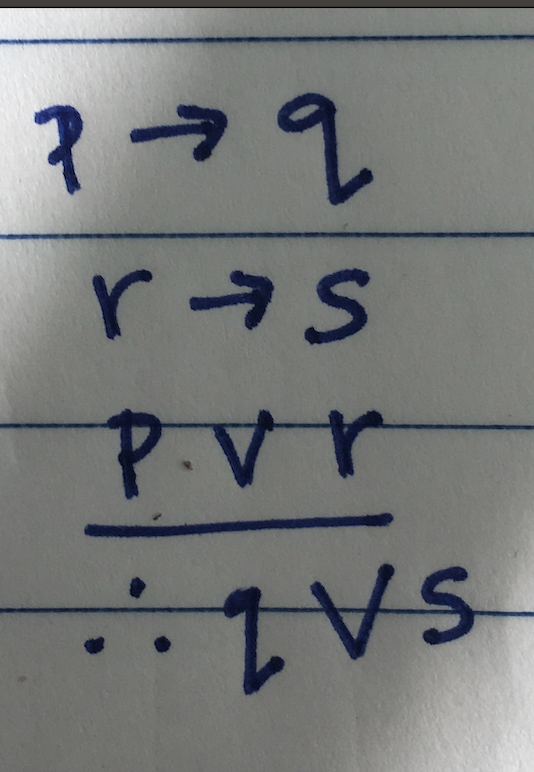 p → q
r → s
p ∨ r
∴ q ∨ s